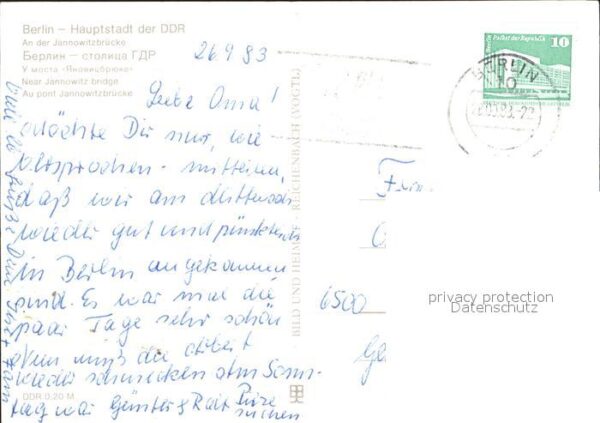 Berlin – Hauptstadt der DDR
An der Jannowitzbrücke
Берлин – столица ГДР
У моста «Яновицбрюке»
Near Jannowitz bridge
Au pont Jannowitzbrücke
26.9.83
Liebe Oma!
Möchte Dir nur, wie
versprochen - mitteilen,
daß wir am
wieder gut und pünktlich
in Berlin angekommen
sind. Es war mal die
paar Tage sehr schön
Nun muß die Arbeit
wieder schmecken Am Sams-
tag war Günter & Ralf Pilze
suchen
DDR 0,20 M
BILD UND HEIMAT REICHENBACH (VOGTL)
Palast der Republik
10
BERLIN
6500
privacy protection
Datenschutz